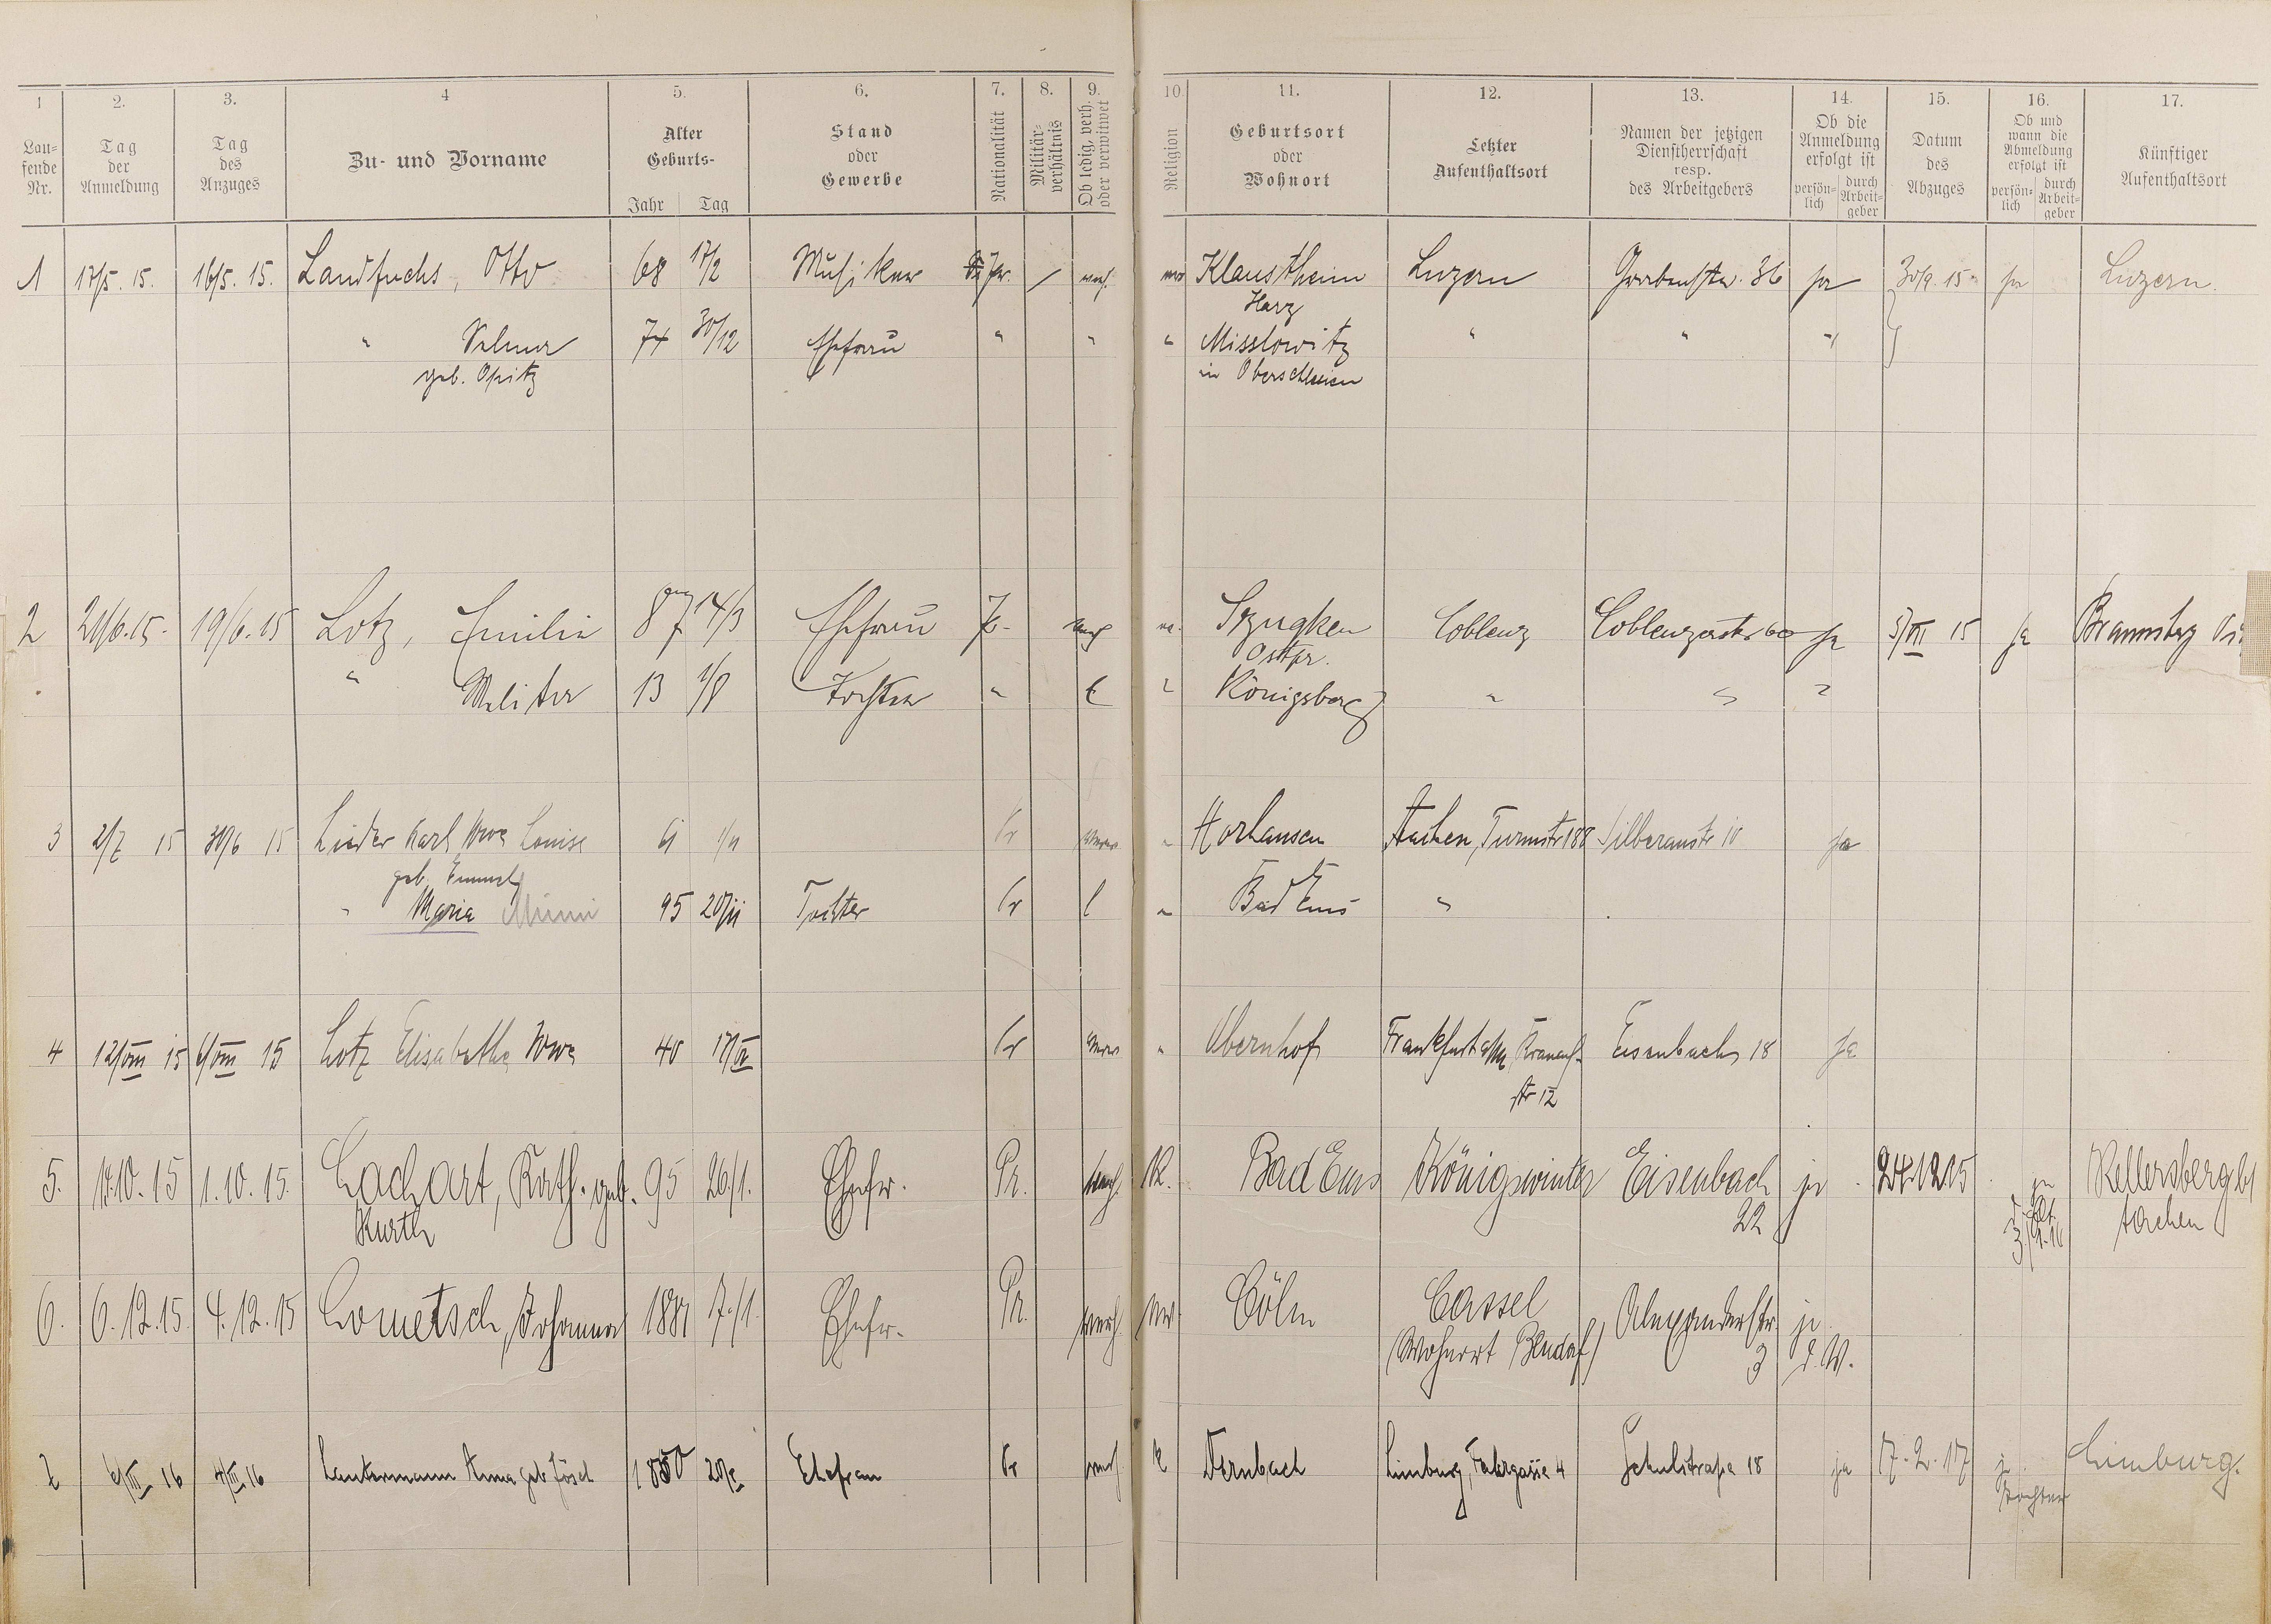 1 2. 3. 4 5. 6. 7. 8. 9. 10. 11. 12. 13. 14. 15. 16. 17.
Lau=
fende
Nr.
Tag
der
Anmeldung
Tag
des
Anzuges
Zu- und Vorname
Alter
Geburts-
Jahr Tag
Stand
oder
Gewerbe
Nationalität
Militär-
verhältnis
Ob ledig, verh.
oder verwitwet
Religion
Geburtsort
oder
Wohnort
Letzter
Aufenthaltsort
Namen der jetzigen
Dienstherrschaft
resp.
des Arbeitgebers
Ob die
Anmeldung
erfolgt ist
persön-
lich
durch
Arbeit-
geber
Datum
des
Abzuges
Ob und
wann die
Abmeldung
erfolgt ist
persön-
lich
durch
Arbeit-
geber
Künftiger
Aufenthaltsort
1 17/5. 15. 16/5. 15. Landfuchs, Otto 68 17/2 Musiker Klaustheim Luzern Grabenstr. 36 ja 30/9. 15 ja Luzern.
Harz
" Selma 74 30/12 Ehefrau " " " Misslowitz " "
geb. Opitz in Oberschlesien
2 21/6. 15. 19/6. 15 Lotz, Emilie 87 14/3 Ehefrau Coblenz Coblenzerstr 60 ja 15 ja
Ostpr.
" 13 1/8 Tochter " Königsberg "
3 2/7 15 30/6 15 Linder Karl Wwe Louise Pr Horhausen Aachen, Turmstr 188 Silberaustr 10 ja
geb.
" Maria Minni 95 20/11 Tochter Pr l " Bad Ems "
4 12/VIII 15 6/VIII 15 Lotz Elisabethe Wwe 40 Pr " Obernhof Frankfurt a/M Eisenbach 18 ja
str 12
5. 15 1. 10. 15. Lachart, Kath. geb. 95 26/1. Ehefr. Pr. verh. K. Bad Ems Königswinter Eisenbach ja 24.12.15 ja Kellersberg b/
Kurth 22 Aachen
6. 6. 12. 15. 4. 12. 15 Lometsch, Johanna 17/1. Ehefr. Pr. verh. Cöln Cassel Alexanderstr. ja
(Wohnort Bendorf) 3 d. W.
7 6/III 16 4/III 16 Lautermann Anna geb. Jösch 1850 Ehefrau Pr verh. K Dernbach Limburg, Fahrgasse 4 Schulstraße 18 ja 17. 2. 17 ja Limburg.
Tochter